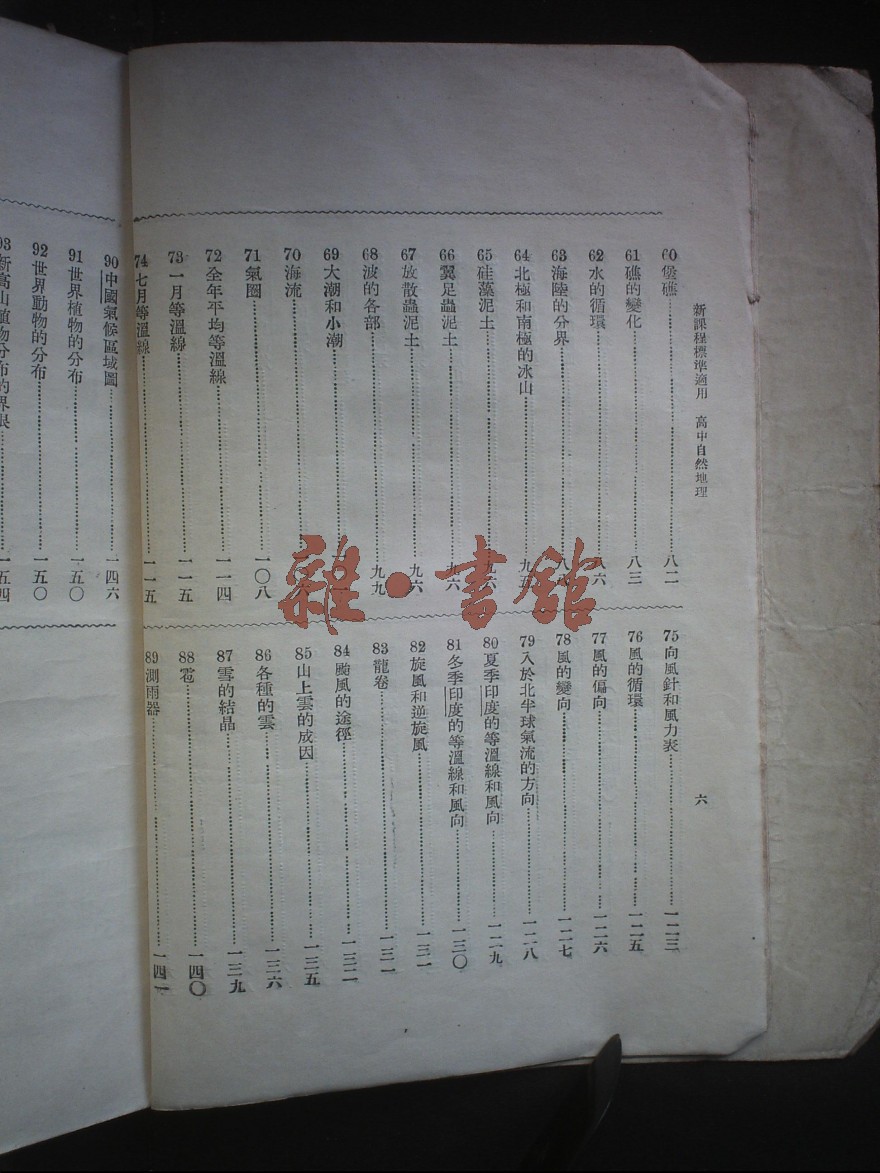 新課程標準適用 高中自然地理
六
60 堡礁 八二
61 礁的變化 八三
62 水的循環 八六
63 海陸的分界
64 北極和南極的冰山 九五
65 硅藻泥土 九六
66 翼足蟲泥土 九六
67 放散蟲泥土 九六
68 波的各部 九九
69 大潮和小潮
70 海流
71 氣圈 一〇八
72 全年平均等溫線 一一四
73 一月等溫線 一一五
74 七月等溫線 一一五
75 向風針和風力表 一二三
76 風的循環 一二五
77 風的偏向 一二六
78 風的變向 一二七
79 入於北半球氣流的方向 一二八
80 夏季印度的等溫線和風向 一二九
81 冬季印度的等溫線和風向 一三〇
82 旋風和逆旋風 一三一
83 龍卷 一三一
84 颱風的途徑 一三二
85 山上雲的成因 一三五
86 各種的雲 一三六
87 雪的結晶 一三九
88 雹 一四〇
89 測雨器 一四一
90 中國氣候區域圖 一四六
91 世界植物的分布 一五〇
92 世界動物的分布 一五〇
93 新高山植物分布的界限 一五四
雜·書館